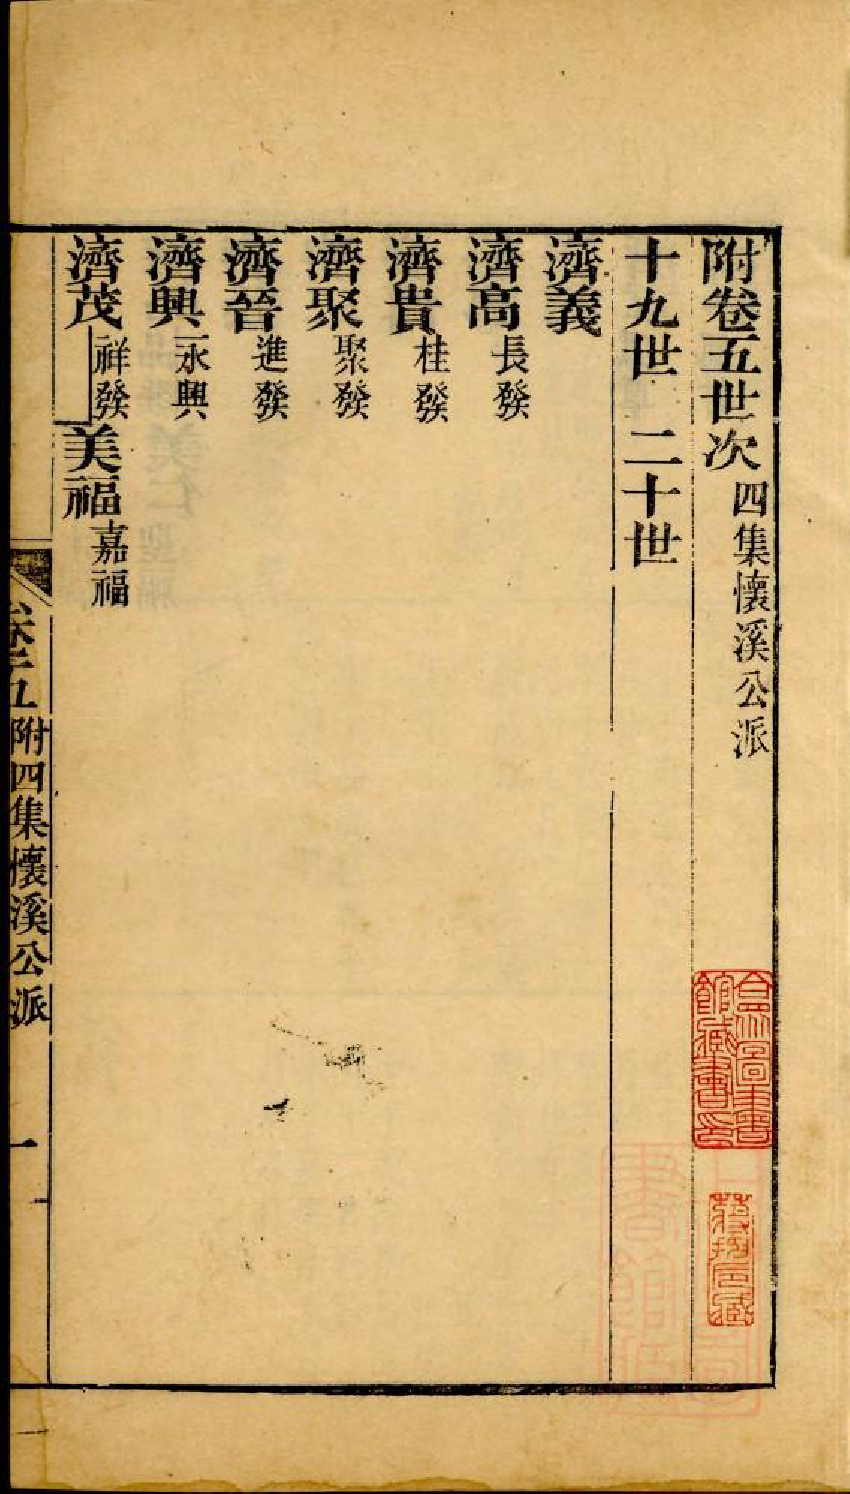 附卷五世次 四集懷溪公派
十九世 二十世
濟義
濟高 長發
濟貴 桂發
濟聚 聚發
濟晉 進發
濟興 永興
濟茂 祥發 美福 嘉福
附四集懷溪公派 一